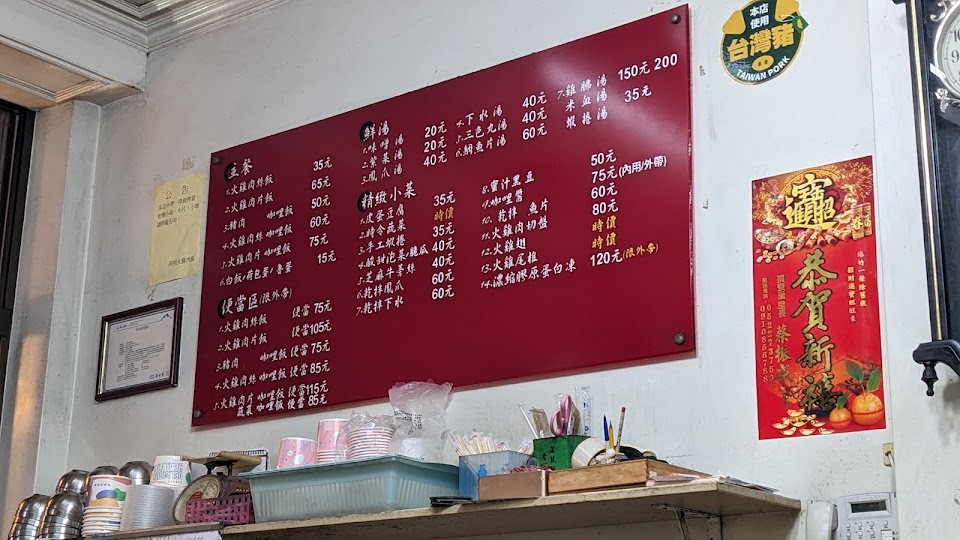 主餐
1.火雞肉絲飯 35元
2.火雞肉片飯 65元
3.豬肉 咖哩飯 50元
4.火雞肉絲咖哩飯 60元
5.火雞肉片咖哩飯 75元
6.白飯/荷包蛋/魯蛋 15元
便當區(限外帶)
1.火雞肉絲飯 便當 75元
2.火雞肉片飯 便當105元
3.豬肉 咖哩飯 便當 75元
4.火雞肉絲 咖哩飯 便當 85元
5.火雞肉片 咖哩飯 便當115元
蔬菜 咖哩飯 便當 85元
鮮湯
1.味噌湯 20元
2.紫菜湯 20元
3.鳳爪湯 40元
4.下水湯 40元
5.三色丸湯 40元
6.鯛魚片湯 60元
7.雞腳湯 150元 200
米血湯
蝦捲湯 35元
精緻小菜
1.皮蛋豆腐 35元
2.時令蔬菜 時價
3.手工蝦捲 35元
4.酸甜泡菜/脆瓜 40元
5.芝麻牛蒡絲 40元
6.乾拌鳳爪 60元
7.乾拌下水 60元
8.蜜汁黑豆 50元
9.咖哩醬 75元(內用/外帶)
10.乾拌 魚片 60元
11.火雞肉切盤 80元
12.火雞翅 時價
13.火雞尾椎 時價
14.濃縮膠原蛋白凍 120元(限外帶)
公告
本店使用
台灣豬
TAIWAN PORK
招財進寶
恭賀新禧
爆竹一聲除舊歲
招財進寶旺旺來